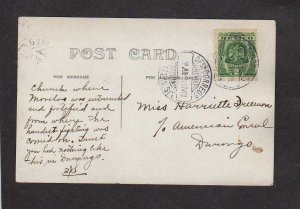 POST CARD
FOR MESSAGE
FOR
Church where
Morelos was intrenched
and fortified and
from where the
hardest fighting was
carried on. Trust
you had nothing like
this in Durango.
Miss Harriette Freeman
c/o American Consul
Durango